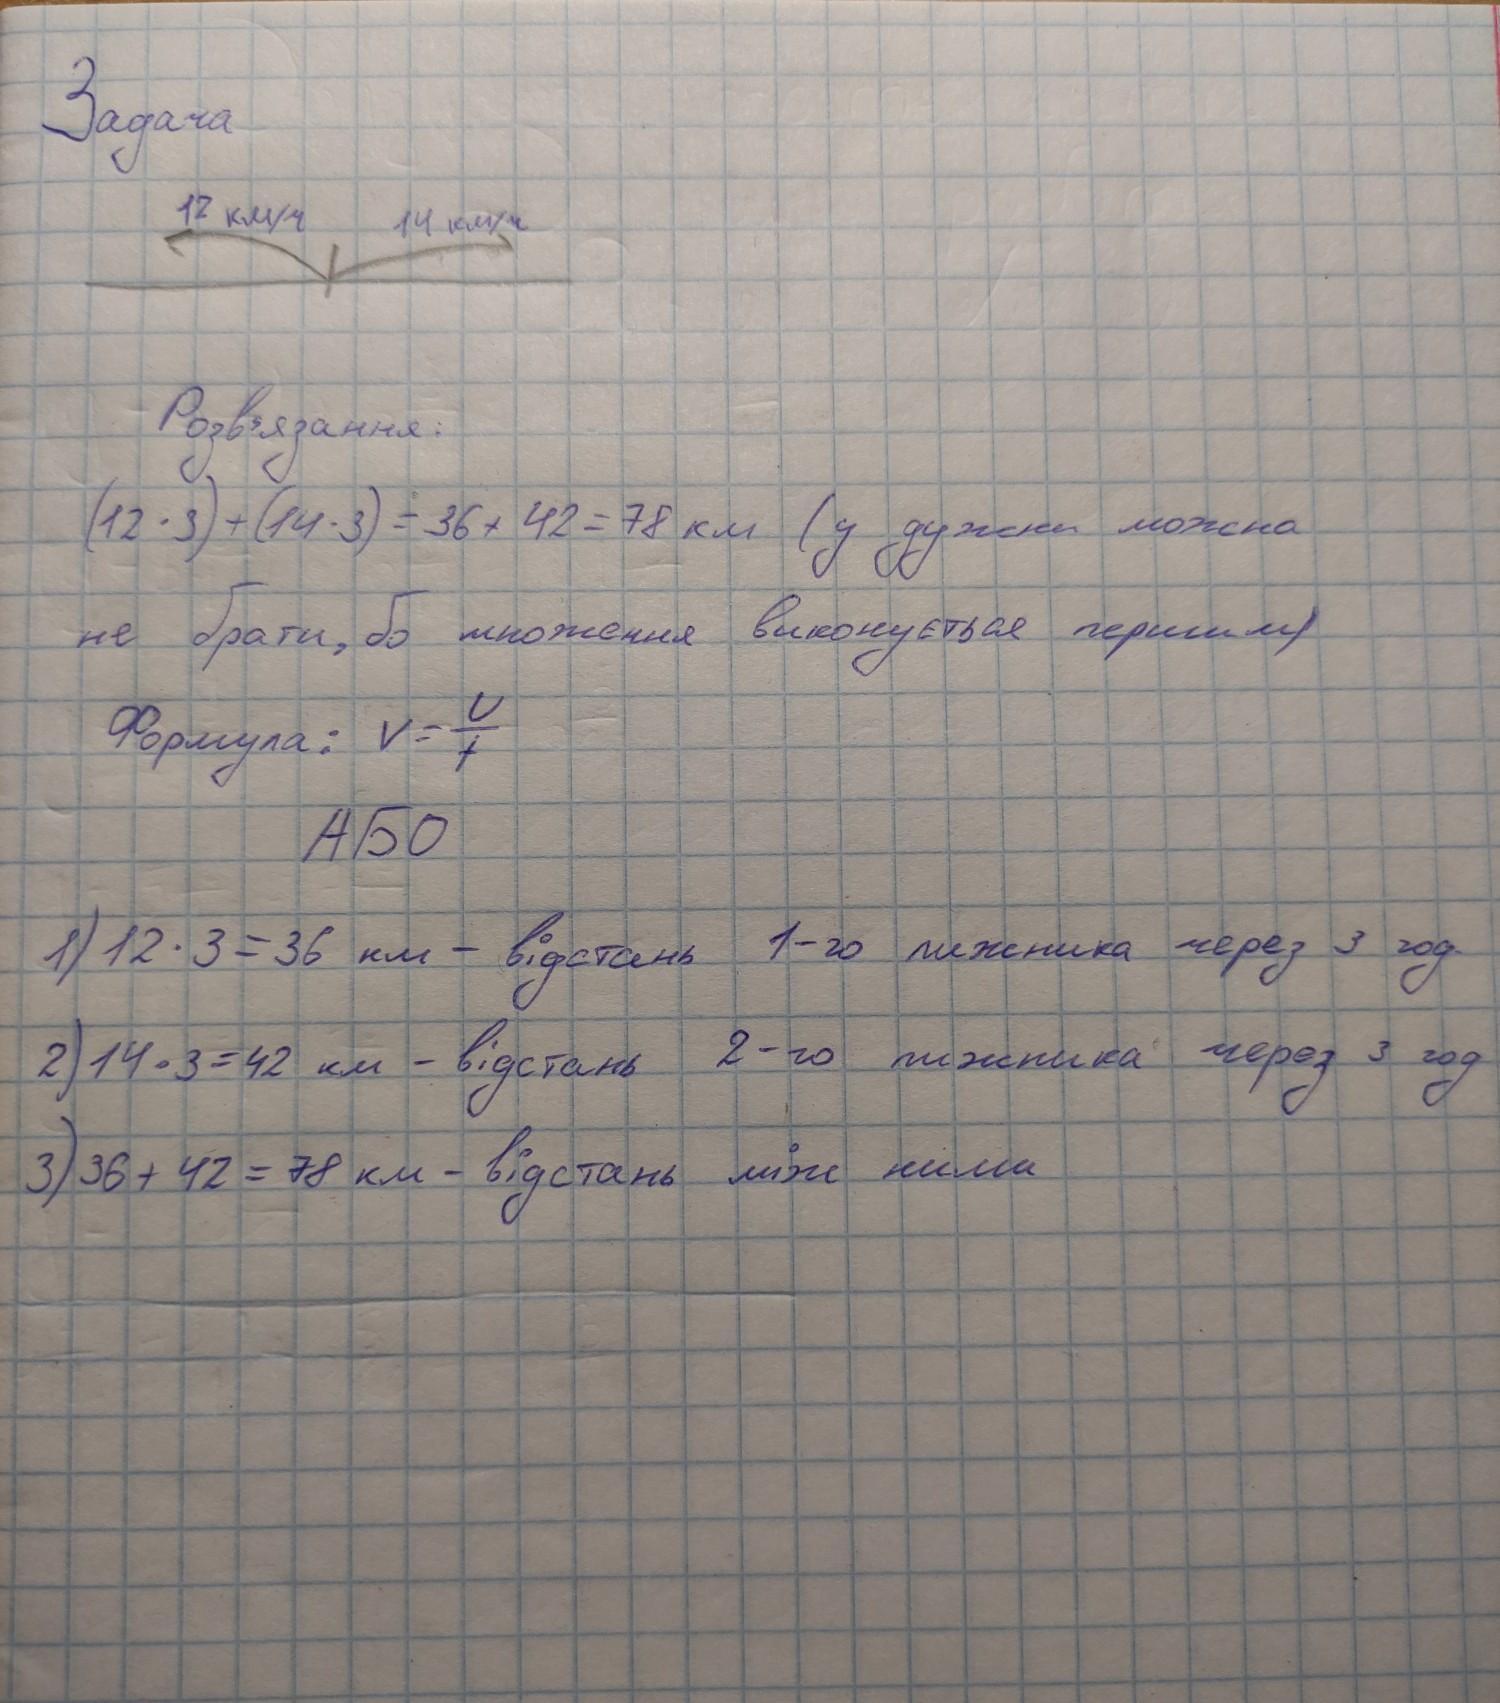 Задача
12 км/ч 14 км/ч
Розв'язання:
(12·3)+(14·3)=36+42=78 км (у дужки можна
не брати, бо множення виконується першим)
Формула: V=U/t
АБО
1) 12·3=36 км – відстань 1-го лижника через 3 год.
2) 14·3=42 км – відстань 2-го лижника через 3 год
3) 36+42=78 км – відстань між ними